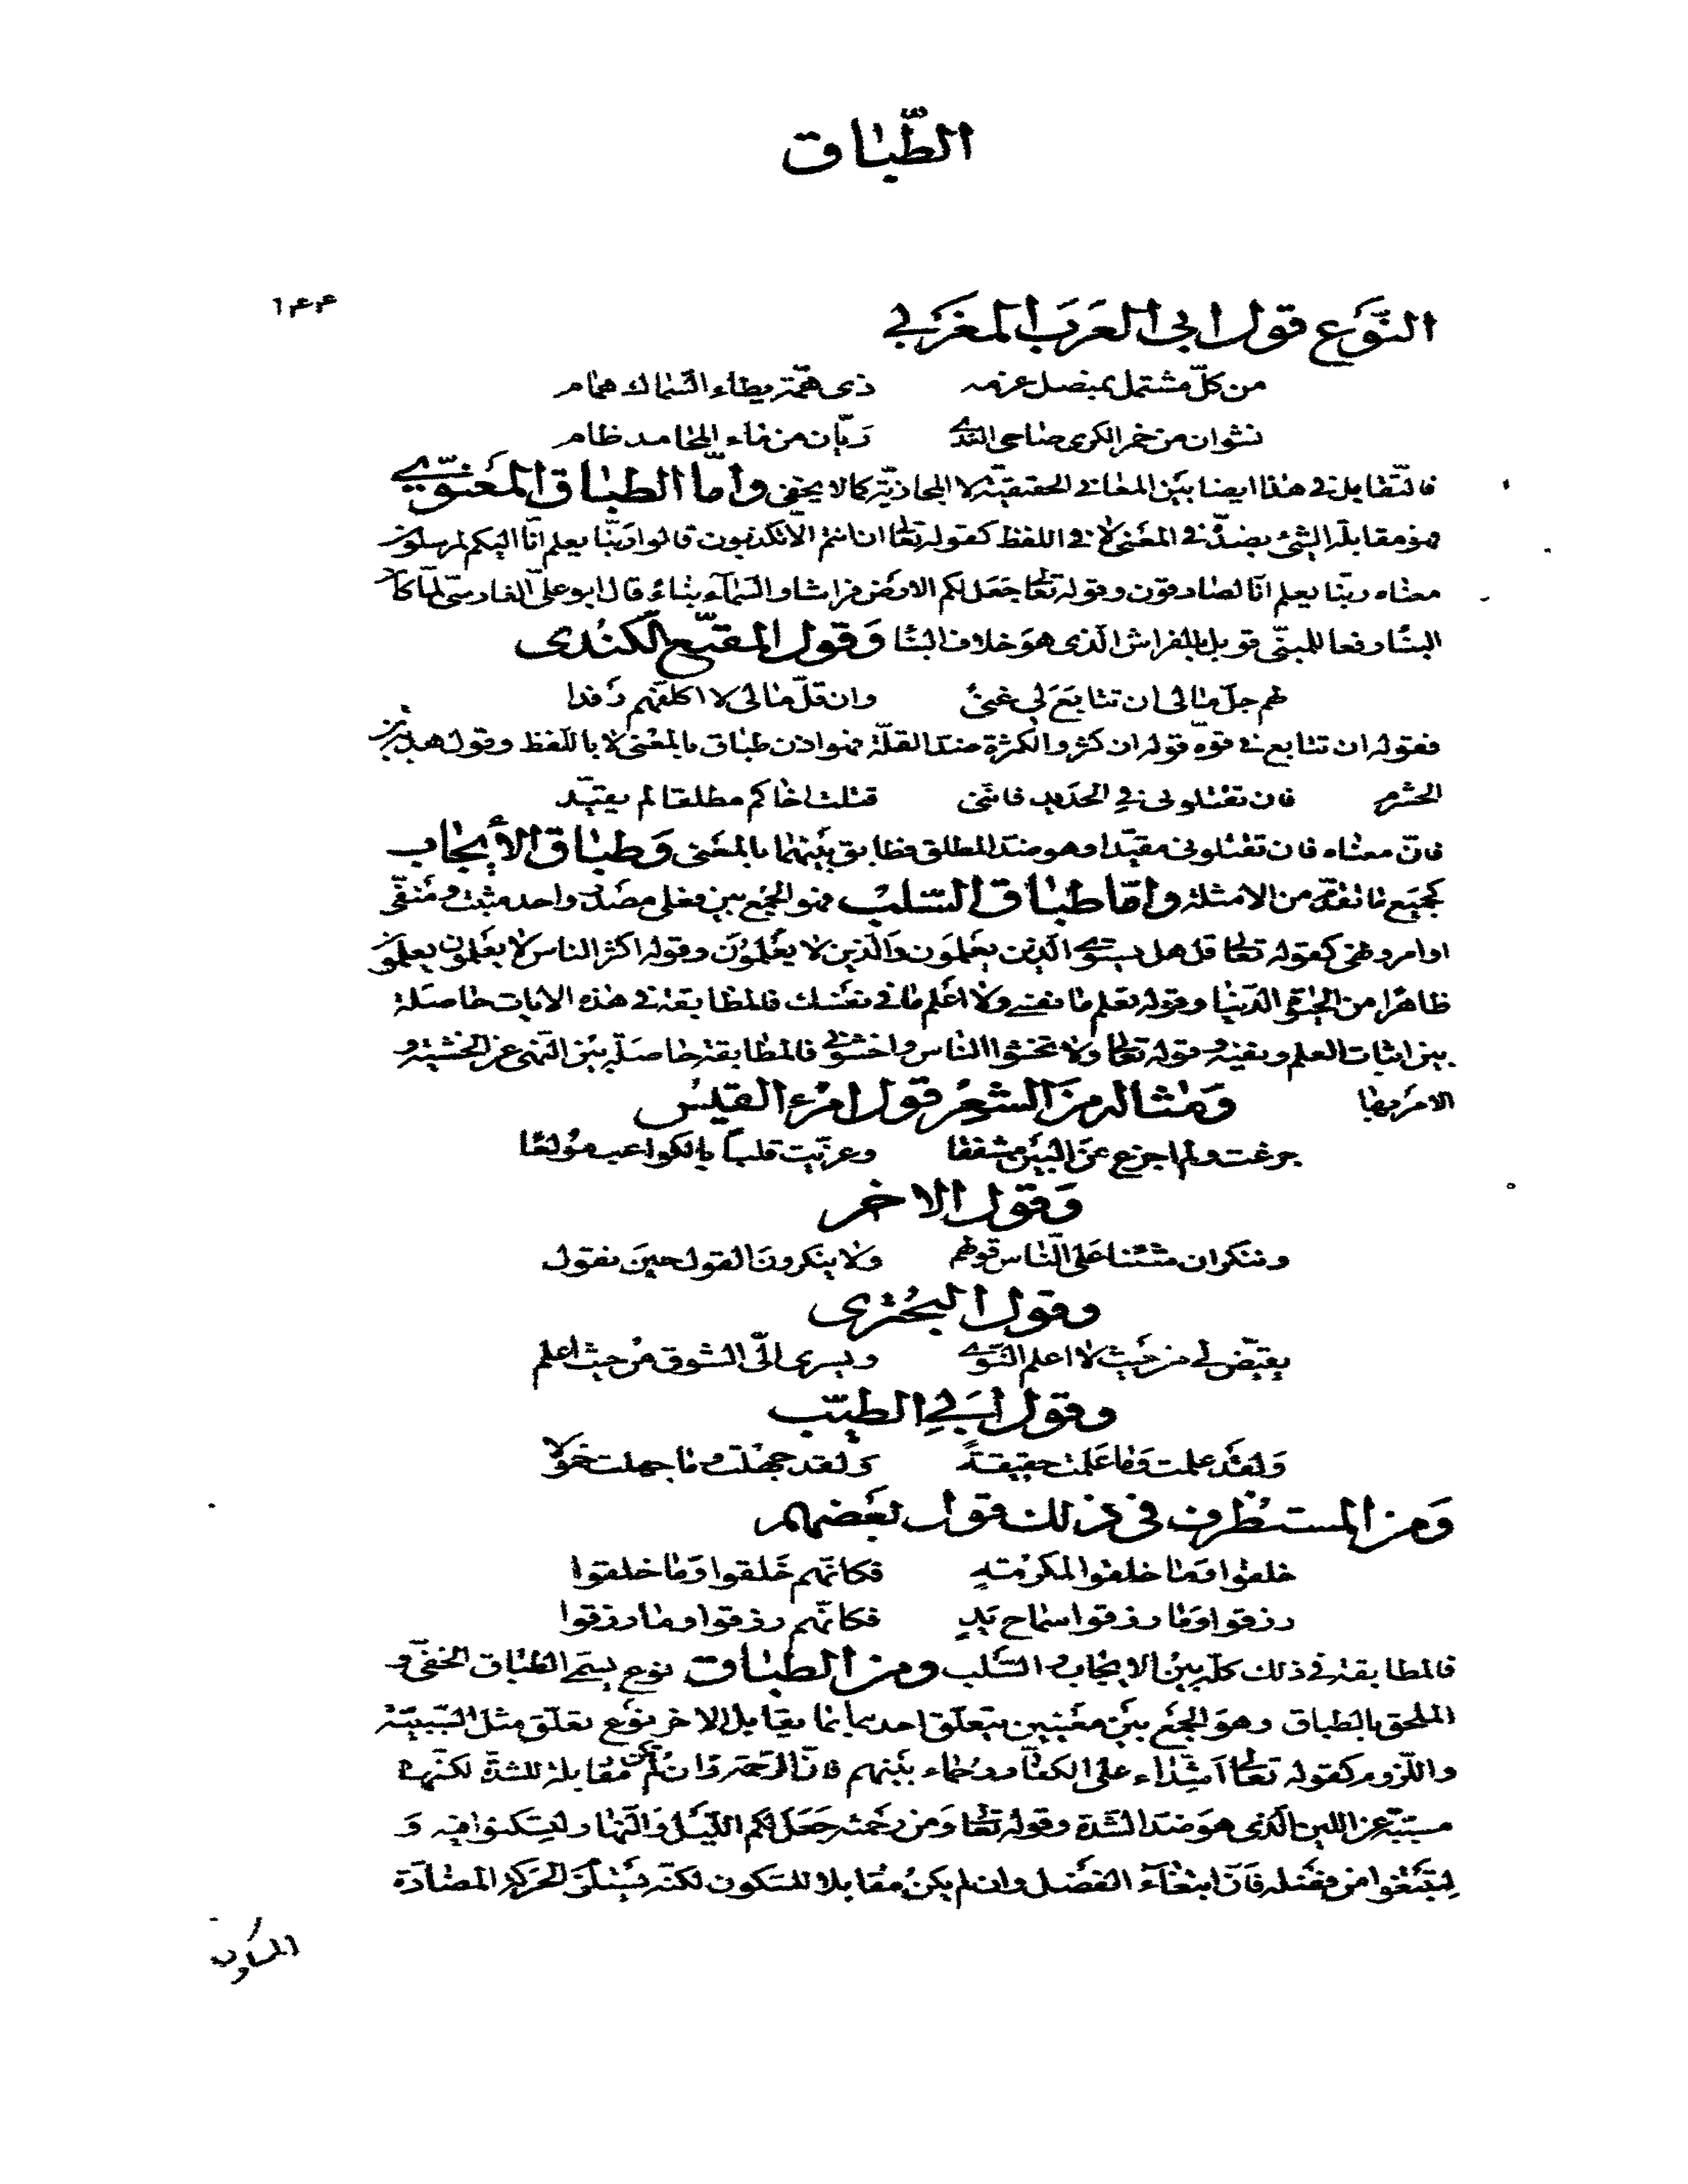 الطّباق
١٤٤
النّوع قول ابى العرب المغربي
من كلّ مشتمل بمنصل عزمه ذى همّة يطاء السّماك همام
نشوان من خمر الكرى صاحى النّدى ريّان من ماء المحامد ظام
فالتّقابل فى هذا ايضا بين المعانى الحقيقيّة لا المجاذيّة كما لا يخفى وامّا الطباق المعنويّ
فهو مقابلة الشئ بضدّه فى المعنى لا فى اللفظ كقوله تعالى ان انتم الّا تكذبون قالوا ربّنا يعلم انّا اليكم لمرسلون
معناه ربّنا يعلم انّا لصادقون وقوله تعالى جعل لكم الارض فراشا والسّمآء بناء قال ابو علىّ الفارسىّ لمّا كان
البنا رفعا للمبنىّ قوبل بالفراش الّذى هو خلاف البنا وقول المقنّع الكندى
لهم جلّ مالى ان تتابع لى غنىً وان قلّ مالى لا اكلّفهم رفدا
فقوله ان تتابع فى قوّة قوله ان كثر والكثرة ضدّ القلّة فهو اذن طباق بالمعنى لا باللّفظ وقول هدبة بن
الخشرم فان تقتلونى فى الحديد فانّنى قتلت اخاكم مطلقا لم يقيّد
فانّ معناه فان تقتلونى مقيّدا وهو ضدّ المطلق فطابق بينهما بالمعنى وطباق الأيجاب
كجميع ما تقدّم من الامثلة وامّا طباق السّلب فهو الجمع بين فعلى مصدر واحد مثبت ومنفىّ
او امر ونهى كقوله تعالى قل هل يستوى الّذين يعلمون والّذين لا يعلمون وقوله اكثر الناس لا يعلمون يعلمون
ظاهرا من الحيوة الدّنيا وقوله تعلم ما فى نفسى ولا اعلم ما فى نفسك فالمطابقة فى هذه الايات حاصلة
بين اثبات العلم ونفيه وقوله تعالى ولا تخشوا الناس واخشونى فالمطابقة حاصلة بين النّهى عن الخشية و
الامر بها ومثاله من الشعر قول امرء القيس
جزعت ولم اجزع من البين مشفقا وعزّيت قلبا بالكواعب مولعا
وقول الاخر
وننكر ان شئنا على النّاس قولهم ولا ينكرون القول حين نقول
وقول البحترى
يقيّض لى من حيث لا اعلم النّوى ويسرى الىّ الشوق من حيث اعلم
وقول ابى الطيّب
ولقد علمت وما علمت حقيقةً ولقد جهلت وما جهلت خمولا
ومن المستظرف فى ذلك قول بعضهم
خلقوا وما خلقوا لمكرمة فكانّهم خلقوا وما خلقوا
رزقوا وما رزقوا سماح يد فكانّهم رزقوا وما رزقوا
فالمطابقة فى ذلك كلّه بين الايجاب والسّلب ومن الطباق نوع يسمّى الطباق الخفىّ و
الملحق بالطباق وهو الجمع بين معنيين يتعلّق احدهما بما يقابل الاخر نوع تعلّق مثل السّببيّة
واللّزوم كقوله تعالى اشدّاء على الكفّار رحماء بينهم فانّ الرّحمة وان لم تكن مقابلة للشدّة لكنّها
مسبّبة عن اللين الّذى هو ضدّ الشدّة وقوله تعالى ومن رحمته جعل لكم اللّيل والنّهار لتسكنوا فيه و
لتبتغوا من فضله فانّ ابتغآء الفضل وان لم يكن مقابلا للسّكون لكنّه يستلزم الحركة المضادّة